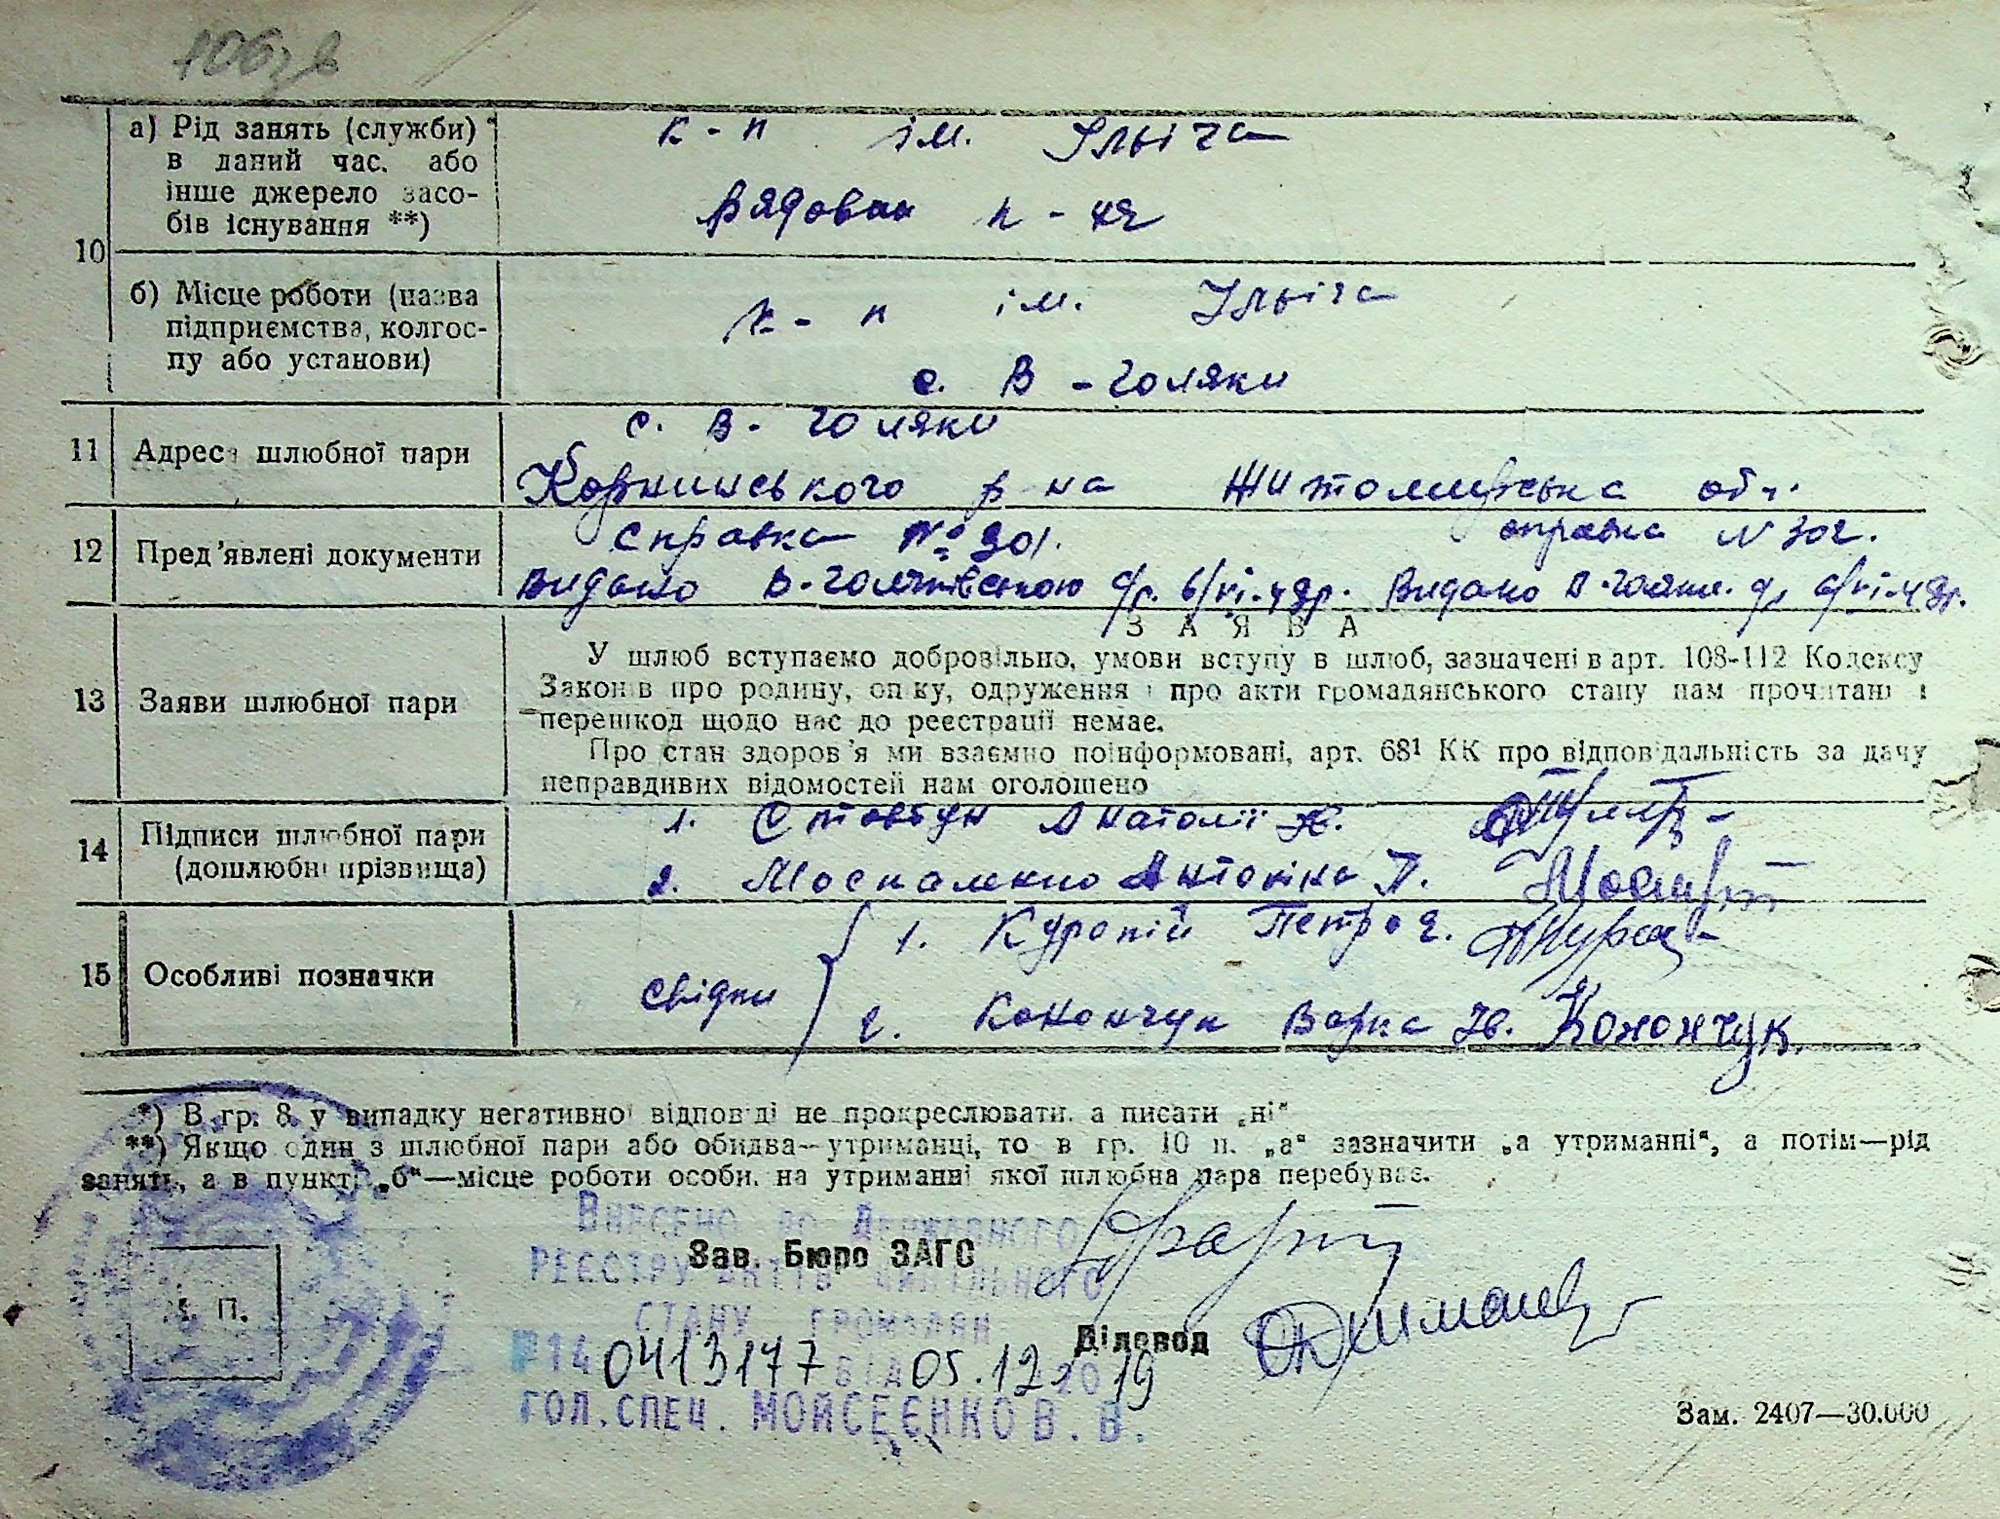 106зв
10
а) Рід занять (служби)
в даний час, або
інше джерело засо-
бів існування **)
к-п ім. Ілліча
к-п
б) Місце роботи (назва
підприємства, колгос-
пу або установи)
к-п ім. Ілліча
с. В-Голяки
11 Адреса шлюбної пари
с. В-Голяки
Корнинського р-на Житомирська обл.
12 Пред'явлені документи
Справка № 301. справка N 302.
Видано В-Голяківською с/р. 6/VI-48р. Видано В-Голяк. 6/VI-48р.
13 Заяви шлюбної пари
ЗАЯВА
У шлюб вступаємо добровільно, умови вступу в шлюб, зазначені в арт. 108-112 Кодексу
Законів про родину, опіку, одруження і про акти громадянського стану нам прочитані і
перешкод щодо нас до реєстрації немає.
Про стан здоров'я ми взаємно поінформовані, арт. 68¹ КК про відповідальність за дачу
неправдивих відомостей нам оголошено
14 Підписи шлюбної пари
(дошлюбні прізвища)
1. Стовбун Анатолії
2. Москаленко Антоніна П.
15 Особливі позначки
Свідки
1. Куропій Петро
2. Конончук Варка Ів. Конончук
*) В гр. 8, у випадку негативної відповіді не прокреслювати, а писати „ні“
**) Якщо один з шлюбної пари або обидва—утриманці, то в гр. 10 п. „а“ зазначити „а утриманні“, а потім—рід
занять, а в пункті „б“—місце роботи особи, на утриманні якої шлюбна пара перебуває.
Внесено до Державного
Зав. Бюро ЗАГС
реєстру актів цивільного
стану громадян
М. П.
Діловод
0413177 від 05.12.2019
гол.спец. Мойсеєнко В.В.
Зам. 2407—30.000